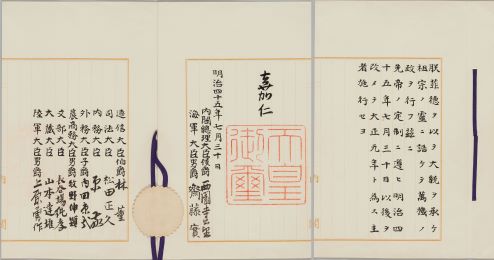 朕菲德ヲ以テ大統ヲ承ケ
祖宗ノ靈ニ誥ケテ萬機ノ
政ヲ行フ茲ニ
先帝ノ定制ニ遵ヒ明治四
十五年七月三十日以後ヲ
改メテ大正元年ト爲ス主
者施行セヨ
嘉仁
天皇
御璽
明治四十五年七月三十日
内閣總理大臣侯爵 西園寺公望
海軍大臣男爵 齋藤實
遞信大臣伯爵 林董
司法大臣 松田正久
内務大臣 原敬
外務大臣子爵 内田康哉
農商務大臣男爵 牧野伸顯
文部大臣 長谷場純孝
大藏大臣 山本達雄
陸軍大臣男爵 上原勇作